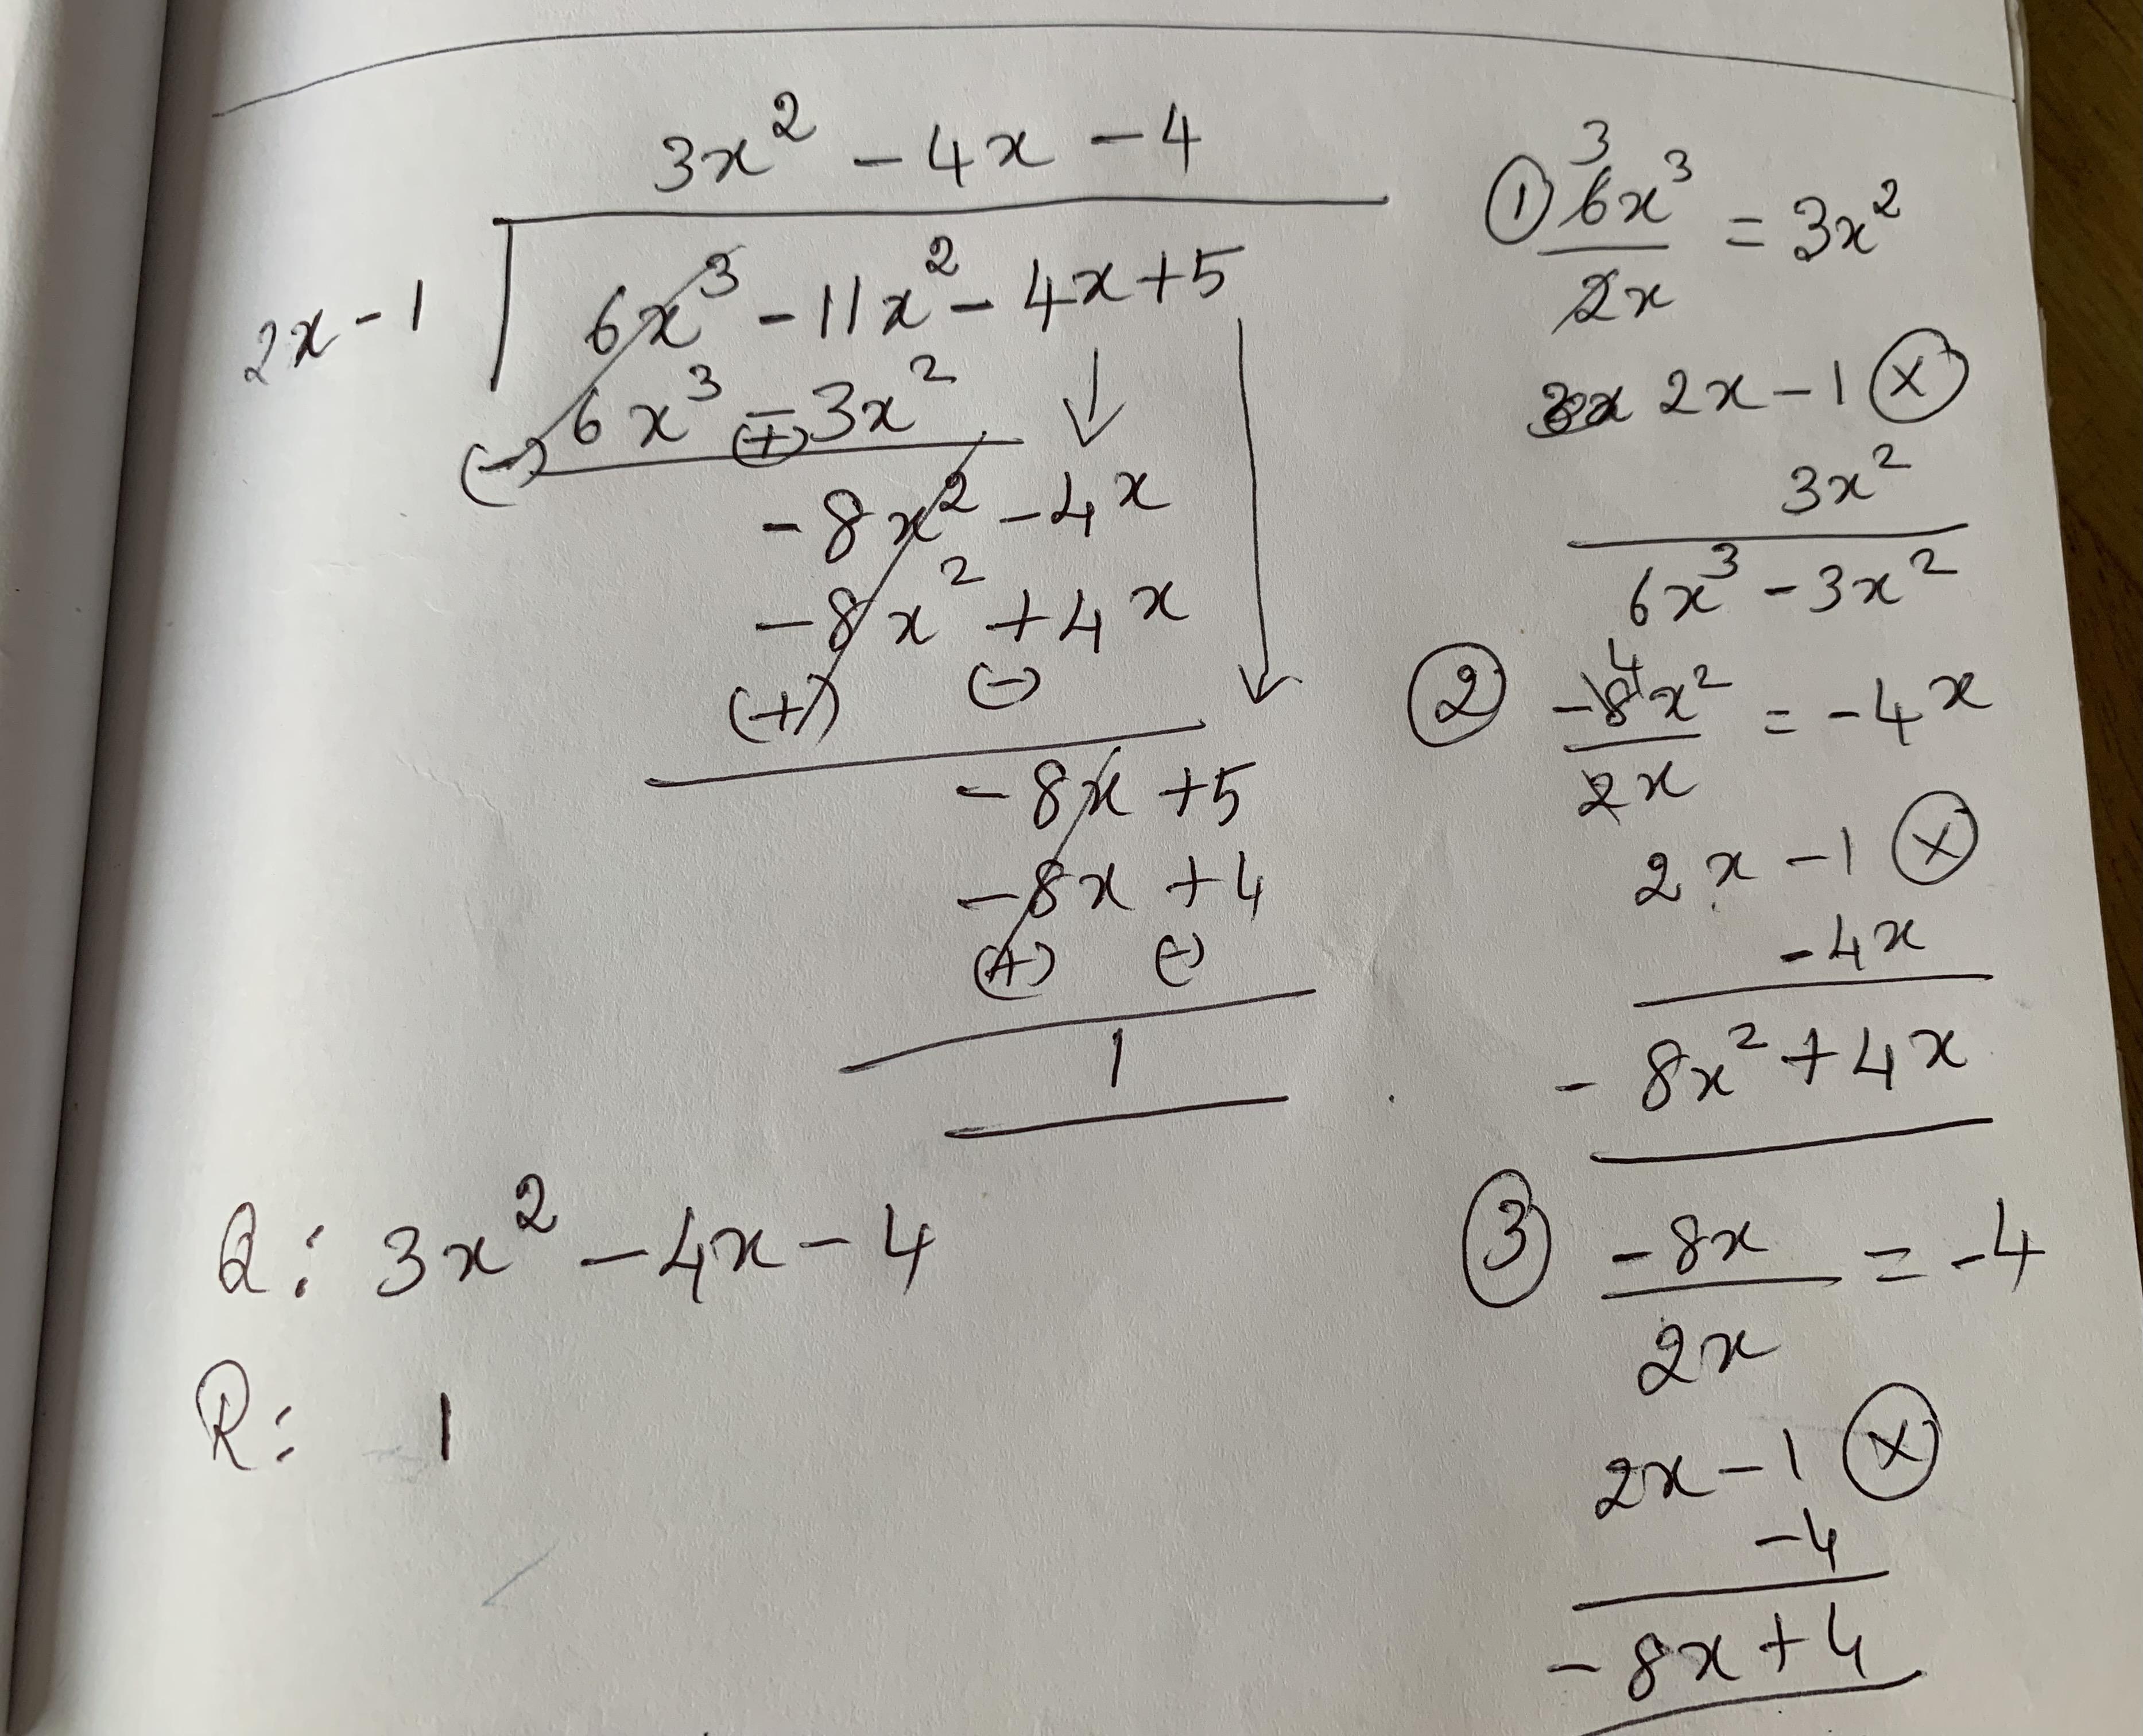 3x² - 4x - 4
2x - 1
6x³ - 11x² - 4x + 5
6x³ - 3x²
(-) (+)
-8x² - 4x
-8x² + 4x
(+) (-)
-8x + 5
-8x + 4
(+) (-)
1
Q: 3x² - 4x - 4
R: 1
① 3
6x³ = 3x²
2x
2x - 1 ⓧ
3x²
6x³ - 3x²
4
② -8x² = -4x
2x
2x - 1 ⓧ
-4x
-8x² + 4x
③ -8x = -4
2x
2x - 1 ⓧ
-4
-8x + 4